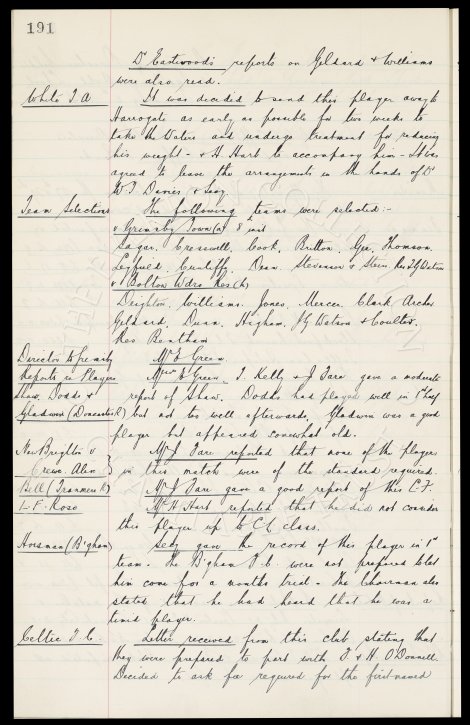 191
Dr Eastwood's reports on Geldard & Williams
were also read.
White T. A. It was decided to send this player away to
Harrogate as early as possible for two weeks to
take the Waters and undergo treatment for reducing
his weight - & H. Hart to accompany him - It was
agreed to leave the arrangements in the hands of Dr
W. J. Davies & Secy.
Team Selections The following teams were selected :-
v Grimsby Town (a)
Sagar, Cresswell, Cook, Britton, Gee, Thomson,
Leyfield, Cunliffe, Dean, Stevenson & Stein. Res T G Watson
v Bolton Wdrs Res (h)
Deighton, Williams, Jones, Mercer, Clark, Archer
Geldard, Dunn, Higham, J G Watson & Coulter.
Res Bentham
Director to Grimsby Mr E Green.
Reports re Players Messrs E Green, T. Kelly & J Fare gave a moderate
Shaw, Dodds & report of Shaw. Dodds had played well in 1st half
Gladwin (Doncaster R) but not too well afterwards. Gladwin was a good
player but appeared somewhat old.
New Brighton v Mr J Fare reported that none of the players
Crewe Alex in this match were of the standard required.
Bell (Tranmere R) Mr J Fare gave a good report of this C.F.
L. F. Roso Mr H Hart reported that he did not consider
this player up to C.L. class.
Horsman (B'gham) Secy gave the record of this player in 1st
team. The B'gham F.C. were not prepared to let
him come for a months trial. The Chairman also
stated that he had heard that he was a
timid player.
Celtic F.C. Letter received from this club stating that
they were prepared to part with F. & H. O'Donnell.
Decided to ask fee required for the first-named